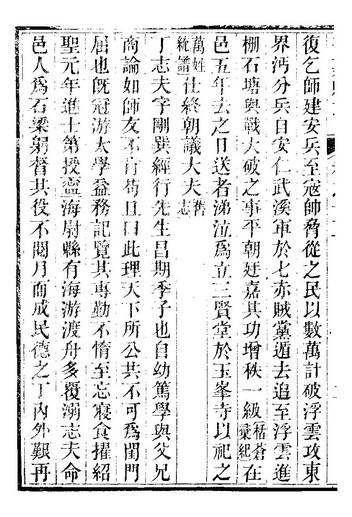 復乞師建安兵至寇師脅從之民以數萬計破浮雲攻東
界沔分兵自安仁武溪軍於七赤賊黨遁去追至浮雲進
柵石塘與戰大破之事平朝廷嘉其功增秩一級括蒼彙紀在
邑五年去之日送者涕泣為立三賢堂於玉峯寺以祀之
萬姓統譜仕終朝議大夫舊志
丁志夫字剛巽經行先生昌期季子也自幼篤學與父兄
商論如師友不肯苟且曰此理天下所公共不可為閨門
屈也旣冠游太學益務記覽其專勤不惰至忘寢食擢紹
聖元年進士第授鹽海尉縣有海游渡舟多覆溺志夫命
邑人為石梁躬督其役不閱月而成民德之丁內外艱再